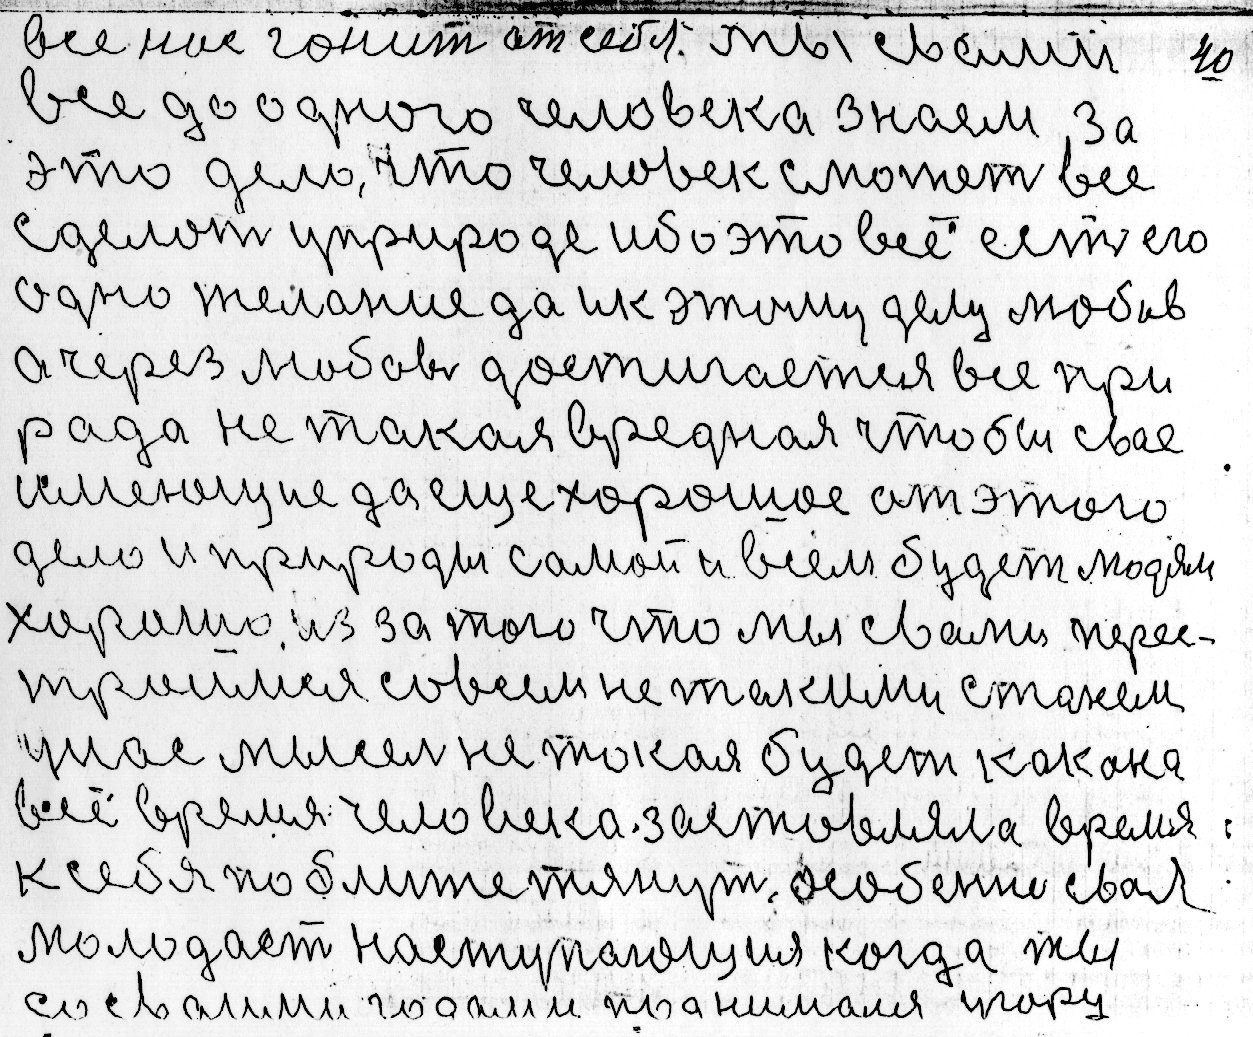 все нас гонит от себя. Мы свами 40
все до одного человека знаем, за
это дело, что человек сможет все
сделот уприроде ибо это всё есть его
одно желание да ик этому делу любов
ачерез любовь достигается все при
рада не такая вредная чтобы свае
имеющие да еще хорошое от этого
дело и природы самой и всем будет людям
хорошо, из за того что мы свами перес-
троимся совсем не такими станем
унас мысел не такая будет как она
всё время человека. заставляла время
ксебя по ближе тянут. особенно свая
молодаст наступающия когда ты
со сваими годами поднимался угору